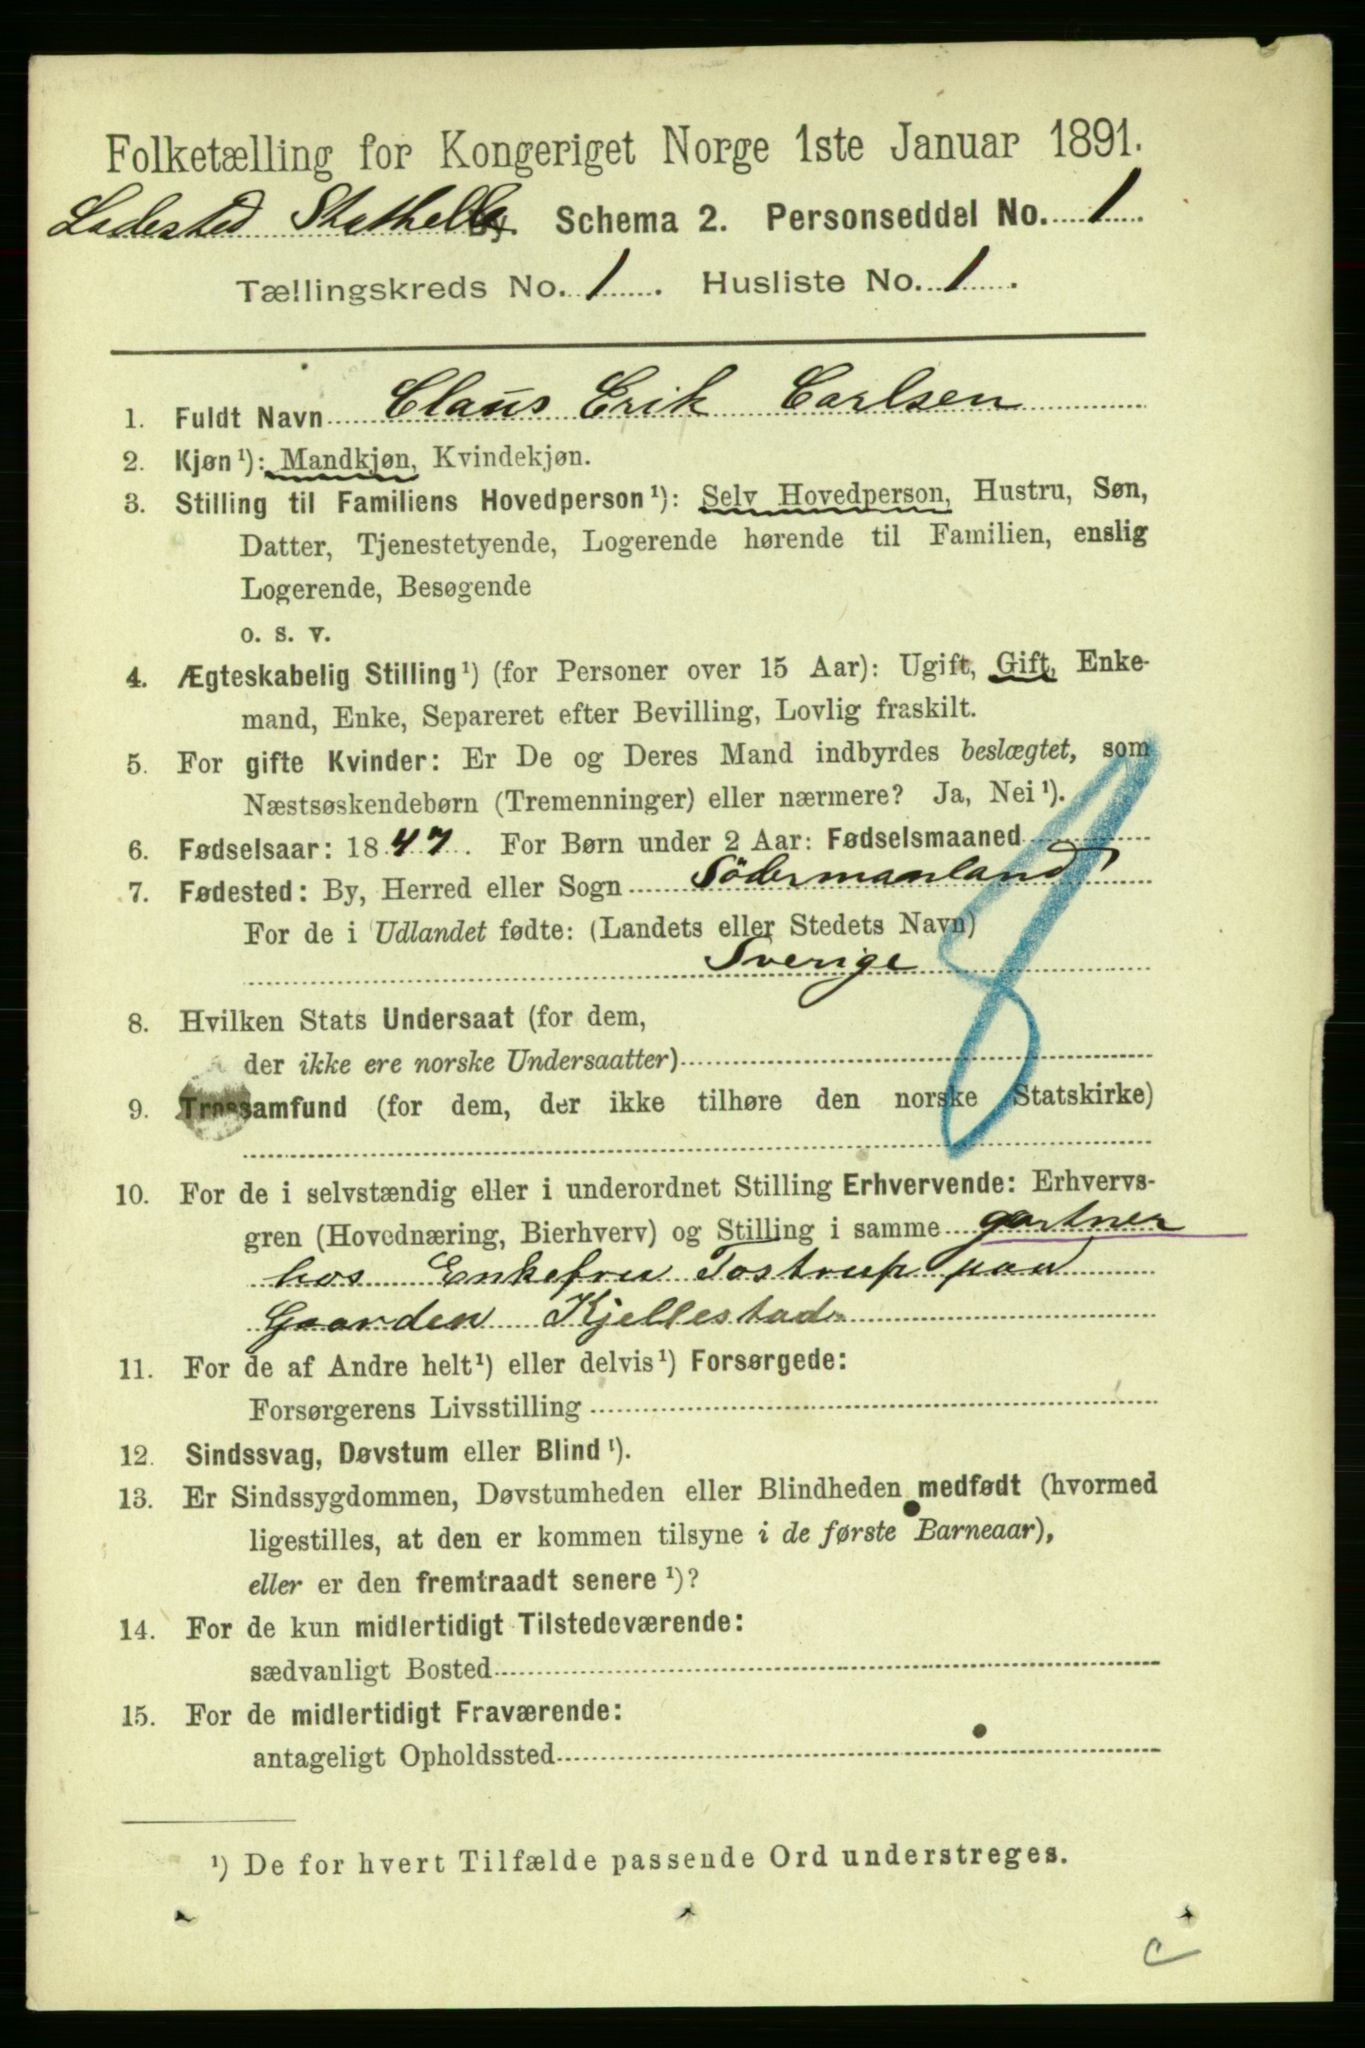 Folketælling for Kongeriget Norge 1ste Januar 1891.
Ladested Stathelle. Schema 2. Personseddel No. 1.
Tællingskreds No. 1. Husliste No. 1.
1. Fuldt Navn Claus Erik Carlsen
2. Kjøn¹): Mandkjøn, Kvindekjøn.
3. Stilling til Familiens Hovedperson¹): Selv Hovedperson, Hustru, Søn,
Datter, Tjenestetyende, Logerende hørende til Familien, enslig
Logerende, Besøgende
o. s. v.
4. Ægteskabelig Stilling¹) (for Personer over 15 Aar): Ugift, Gift, Enke-
mand, Enke, Separeret efter Bevilling, Lovlig fraskilt.
5. For gifte Kvinder: Er De og Deres Mand indbyrdes beslægtet, som
Næstsøskendebørn (Tremenninger) eller nærmere? Ja, Nei¹).
6. Fødselsaar: 1847. For Børn under 2 Aar: Fødselsmaaned
7. Fødested: By, Herred eller Sogn Södermanland
For de i Udlandet fødte: (Landets eller Stedets Navn)
Sverige
8. Hvilken Stats Undersaat (for dem,
der ikke ere norske Undersaatter)
9. Trossamfund (for dem, der ikke tilhøre den norske Statskirke)
10. For de i selvstændig eller i underordnet Stilling Erhvervende: Erhvervs-
gren (Hovednæring, Bierhverv) og Stilling i samme gartner
hos Enkefru Tostrup paa
Gaarden Kjellestad
11. For de af Andre helt¹) eller delvis¹) Forsørgede:
Forsørgerens Livsstilling
12. Sindssvag, Døvstum eller Blind¹).
13. Er Sindssygdommen, Døvstumheden eller Blindheden medfødt (hvormed
ligestilles, at den er kommen tilsyne i de første Barneaar),
eller er den fremtraadt senere¹)?
14. For de kun midlertidigt Tilstedeværende:
sædvanligt Bosted
15. For de midlertidigt Fraværende:
antageligt Opholdssted
¹) De for hvert Tilfælde passende Ord understreges.
c